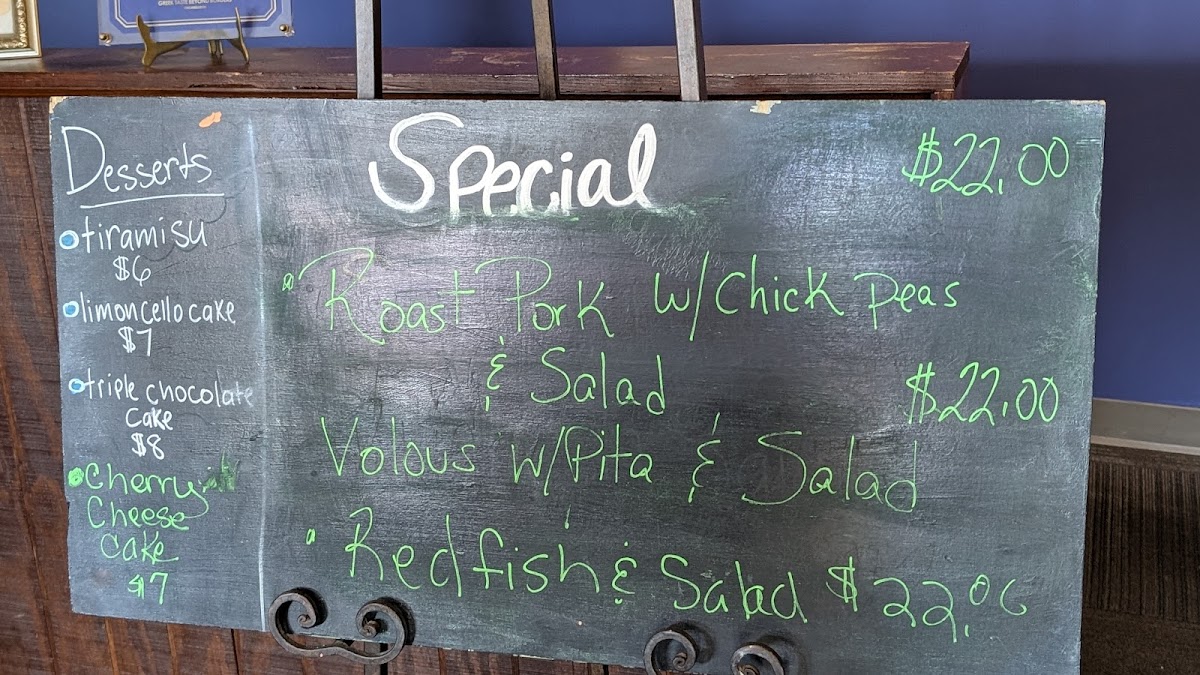 GREEK TASTE BEYOND BORDERS
Desserts
tiramisu
$6
limoncello cake
$7
triple chocolate
cake
$8
Cherry
Cheese
Cake
$7
Special
$22.00
Roast Pork w/Chick peas
& Salad
$22.00
Volous w/Pita & Salad
Redfish & Salad $22.00